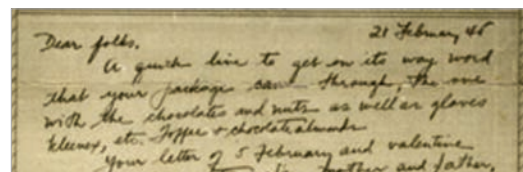 21 February 45
Dear folks,
A quick line to get on its way word
that your package came through, the one
with the chocolates and nuts as well as gloves
Kleenex, etc. Toffee & chocolate almonds
Your letter of 5 February and valentine
mother and father,